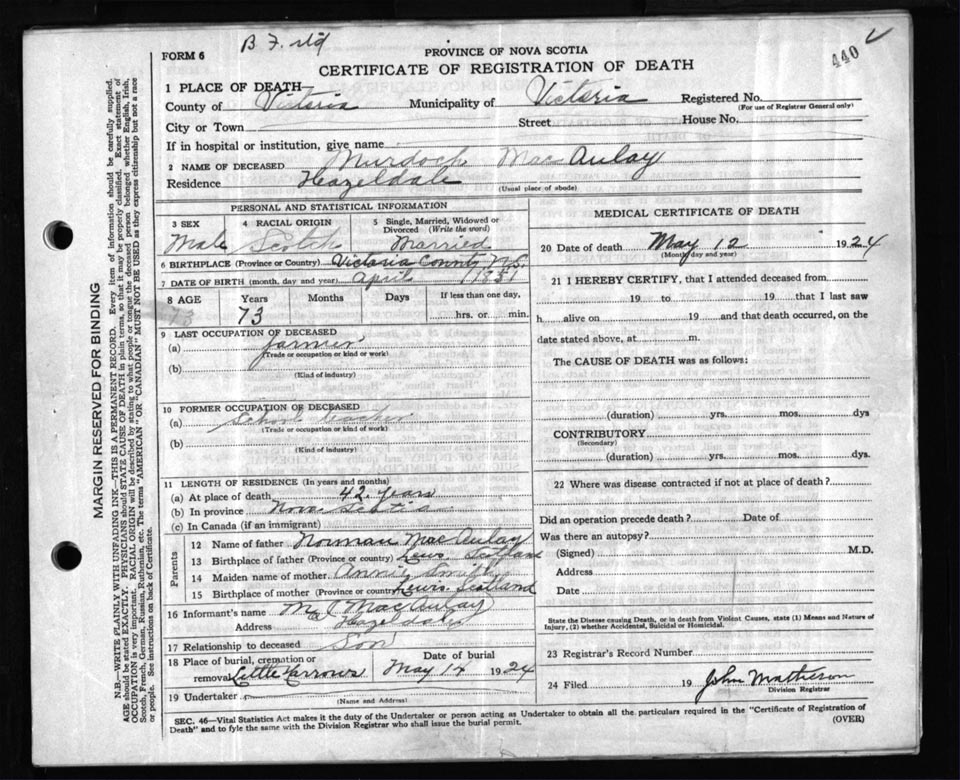 440
FORM 6
PROVINCE OF NOVA SCOTIA
CERTIFICATE OF REGISTRATION OF DEATH
1 PLACE OF DEATH—
County of Victoria Municipality of Victoria Registered No.
(For use of Registrar General only)
City or Town Street House No.
If in hospital or institution, give name
2 NAME OF DECEASED Murdoch MacAulay
Residence Hazeldale
(Usual place of abode)
PERSONAL AND STATISTICAL INFORMATION
3 SEX 4 RACIAL ORIGIN 5 Single, Married, Widowed or Divorced (Write the word)
Male Scotch Married
6 BIRTHPLACE (Province or Country) Victoria County N.S.
7 DATE OF BIRTH (month, day and year) April 1851
8 AGE Years Months Days If less than one day,
73 73 hrs. or min.
9 LAST OCCUPATION OF DECEASED
(a) Farmer
(Trade or occupation or kind or work)
(b)
(Kind of industry)
10 FORMER OCCUPATION OF DECEASED
(a) School teacher
(Trade or occupation or kind or work)
(b)
(Kind of industry)
11 LENGTH OF RESIDENCE (In years and months)
(a) At place of death 42 years
(b) In province Nova Scotia
(c) In Canada (if an immigrant)
Parents
12 Name of father Norman MacAulay
13 Birthplace of father (Province or country) Lewis Scotland
14 Maiden name of mother Annie Smith
15 Birthplace of mother (Province or country) Lewis Scotland
16 Informant's name MacAulay
Address Hazeldale
17 Relationship to deceased Son
18 Place of burial, cremation or removal Date of burial
Little Narrows May 14 1924
19 Undertaker
(Name and Address)
MEDICAL CERTIFICATE OF DEATH
20 Date of death May 12 1924
(Month, day and year)
21 I HEREBY CERTIFY, that I attended deceased from
19 to 19 that I last saw
h alive on 19 and that death occurred, on the
date stated above, at m.
The CAUSE OF DEATH was as follows:
(duration) yrs. mos. dys
CONTRIBUTORY
(Secondary)
(duration) yrs. mos. dys.
22 Where was disease contracted if not at place of death?
Did an operation precede death? Date of
Was there an autopsy?
(Signed) M.D.
Address
Date
State the Disease causing Death, or in death from Violent Causes, state (1) Means and Nature of Injury, (2) whether Accidental, Suicidal or Homicidal.
23 Registrar's Record Number
24 Filed 19 John Matheson
Division Registrar
SEC. 46—Vital Statistics Act makes it the duty of the Undertaker or person acting as Undertaker to obtain all the particulars required in the "Certificate of Registration of
Death" and to fyle the same with the Division Registrar who shall issue the burial permit. (OVER)
MARGIN RESERVED FOR BINDING
N.B.—WRITE PLAINLY WITH UNFADING INK—THIS IS A PERMANENT RECORD. Every item of information should be carefully supplied.
AGE should be stated EXACTLY. PHYSICIANS should STATE CAUSE OF DEATH in plain terms, so that it may be properly classified. Exact statement of
OCCUPATION is very important. RACIAL ORIGIN will be described by stating to what people or tongue the deceased person belonged whether English, Irish,
Scotch, French, German, Russian, Ruthenian, etc. The terms "AMERICAN" OR "CANADIAN" MUST NOT BE USED as they express citizenship but not a race
or people. See instructions on back of Certificate.